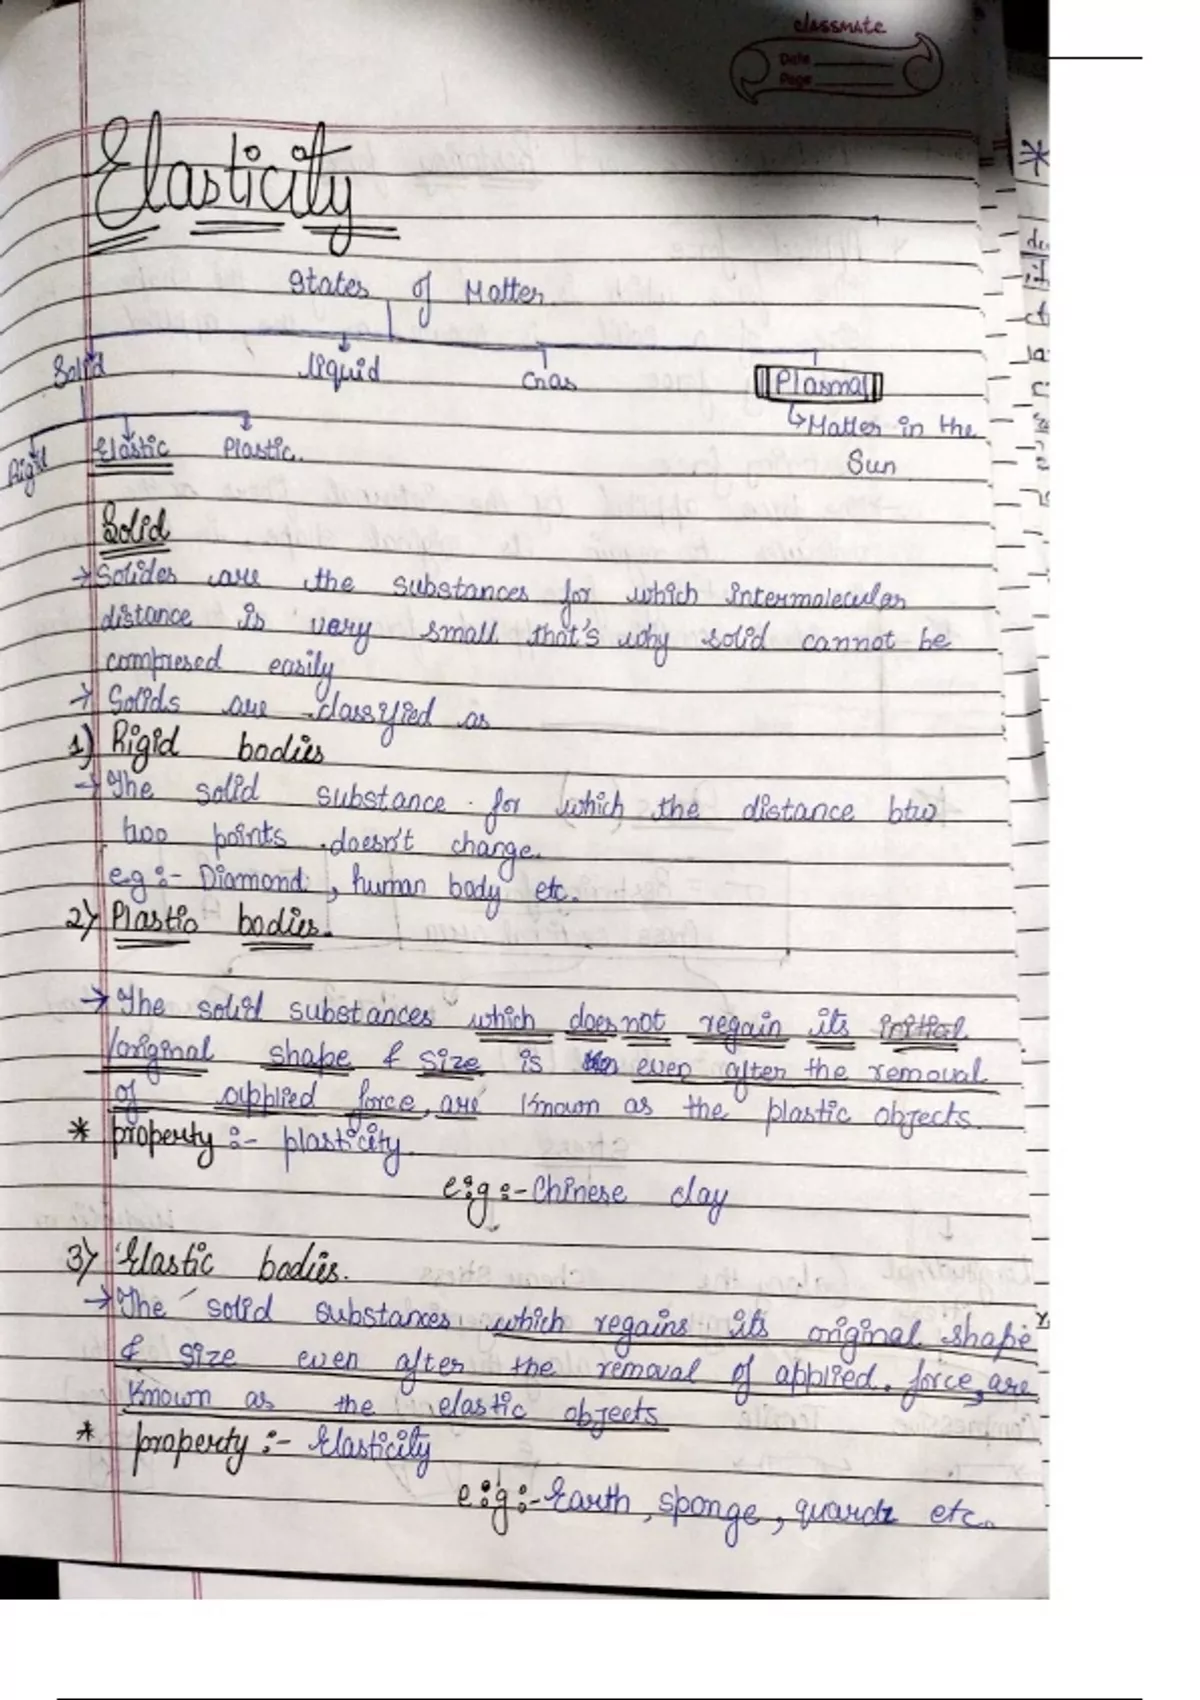 classmate
Date
Page
Elasticity
States of Matter
Solid liquid Gas Plasma
Matter in the
Rigid Elastic Plastic. Sun
Solid
→ Solides are the substances for which intermolecular
distance is very small that's why solid cannot be
compresed easily
→ Solids are classified as
1) Rigid bodies
→ The solid substance for which the distance btw
two points doesn't change.
e.g :- Diamond, human body etc.
2) Plastic bodies.
→ The solid substances which does not regain its initial
/original shape & size is even after the removal
of applied force, are known as the plastic objects.
* property :- plasticity.
e.g :- Chinese clay
3) Elastic bodies.
→ The solid substances which regains its original shape
& size even after the removal of applied. force, are
known as the elastic objects
* property :- Elasticity
e.g :- Earth, sponge, quardz etc.